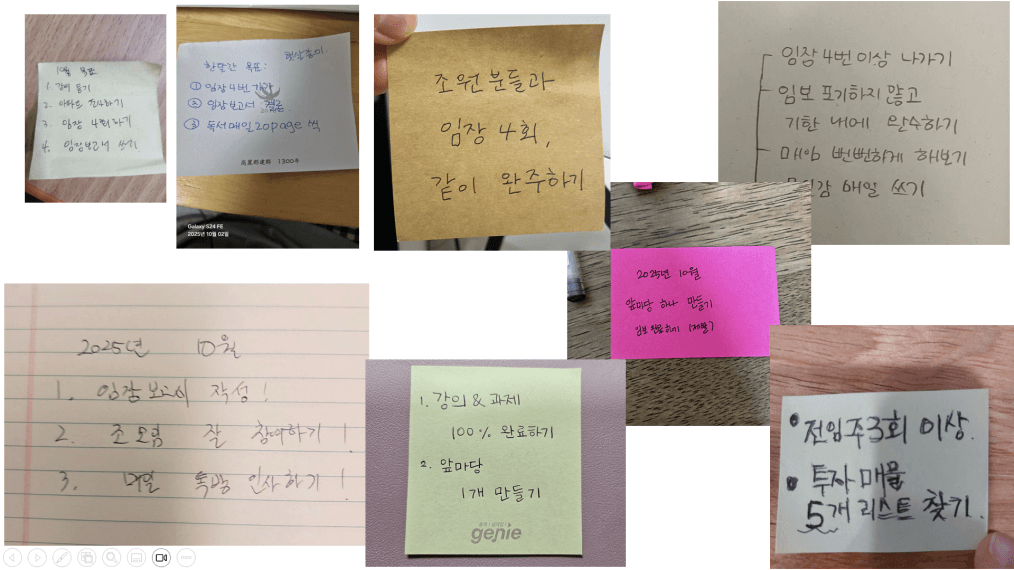 10월 목표
1. 강의 듣기
2. 아파트 조사하기
3. 임장 4회하기
4. 임장보고서 쓰기
햇살풍이.
한달간 목표:
① 임장 4번 가라
② 임장보고서
③ 독서매일 20page 씩
1300年
Galaxy S24 FE
2025년 10월 02일
조원분들과
임장 4회,
같이 완주하기
임장 4번 이상 나가기
임보 포기하지 않고
기한 내에 완수하기
매임 뻔뻔하게 해보기
매일 쓰기
2025년 10월
앞마당 하나 만들기
임보 완료하기 (제발)
2025년 10월
1. 임장보고서 작성!
2. 조모임 잘 참여하기!
3. 매일 톡방 인사하기!
1. 강의 & 과제
100% 완료하기
2. 앞마당
1개 만들기
genie
• 전임 주3회 이상.
• 투자 매물
5개 리스트 찾기.